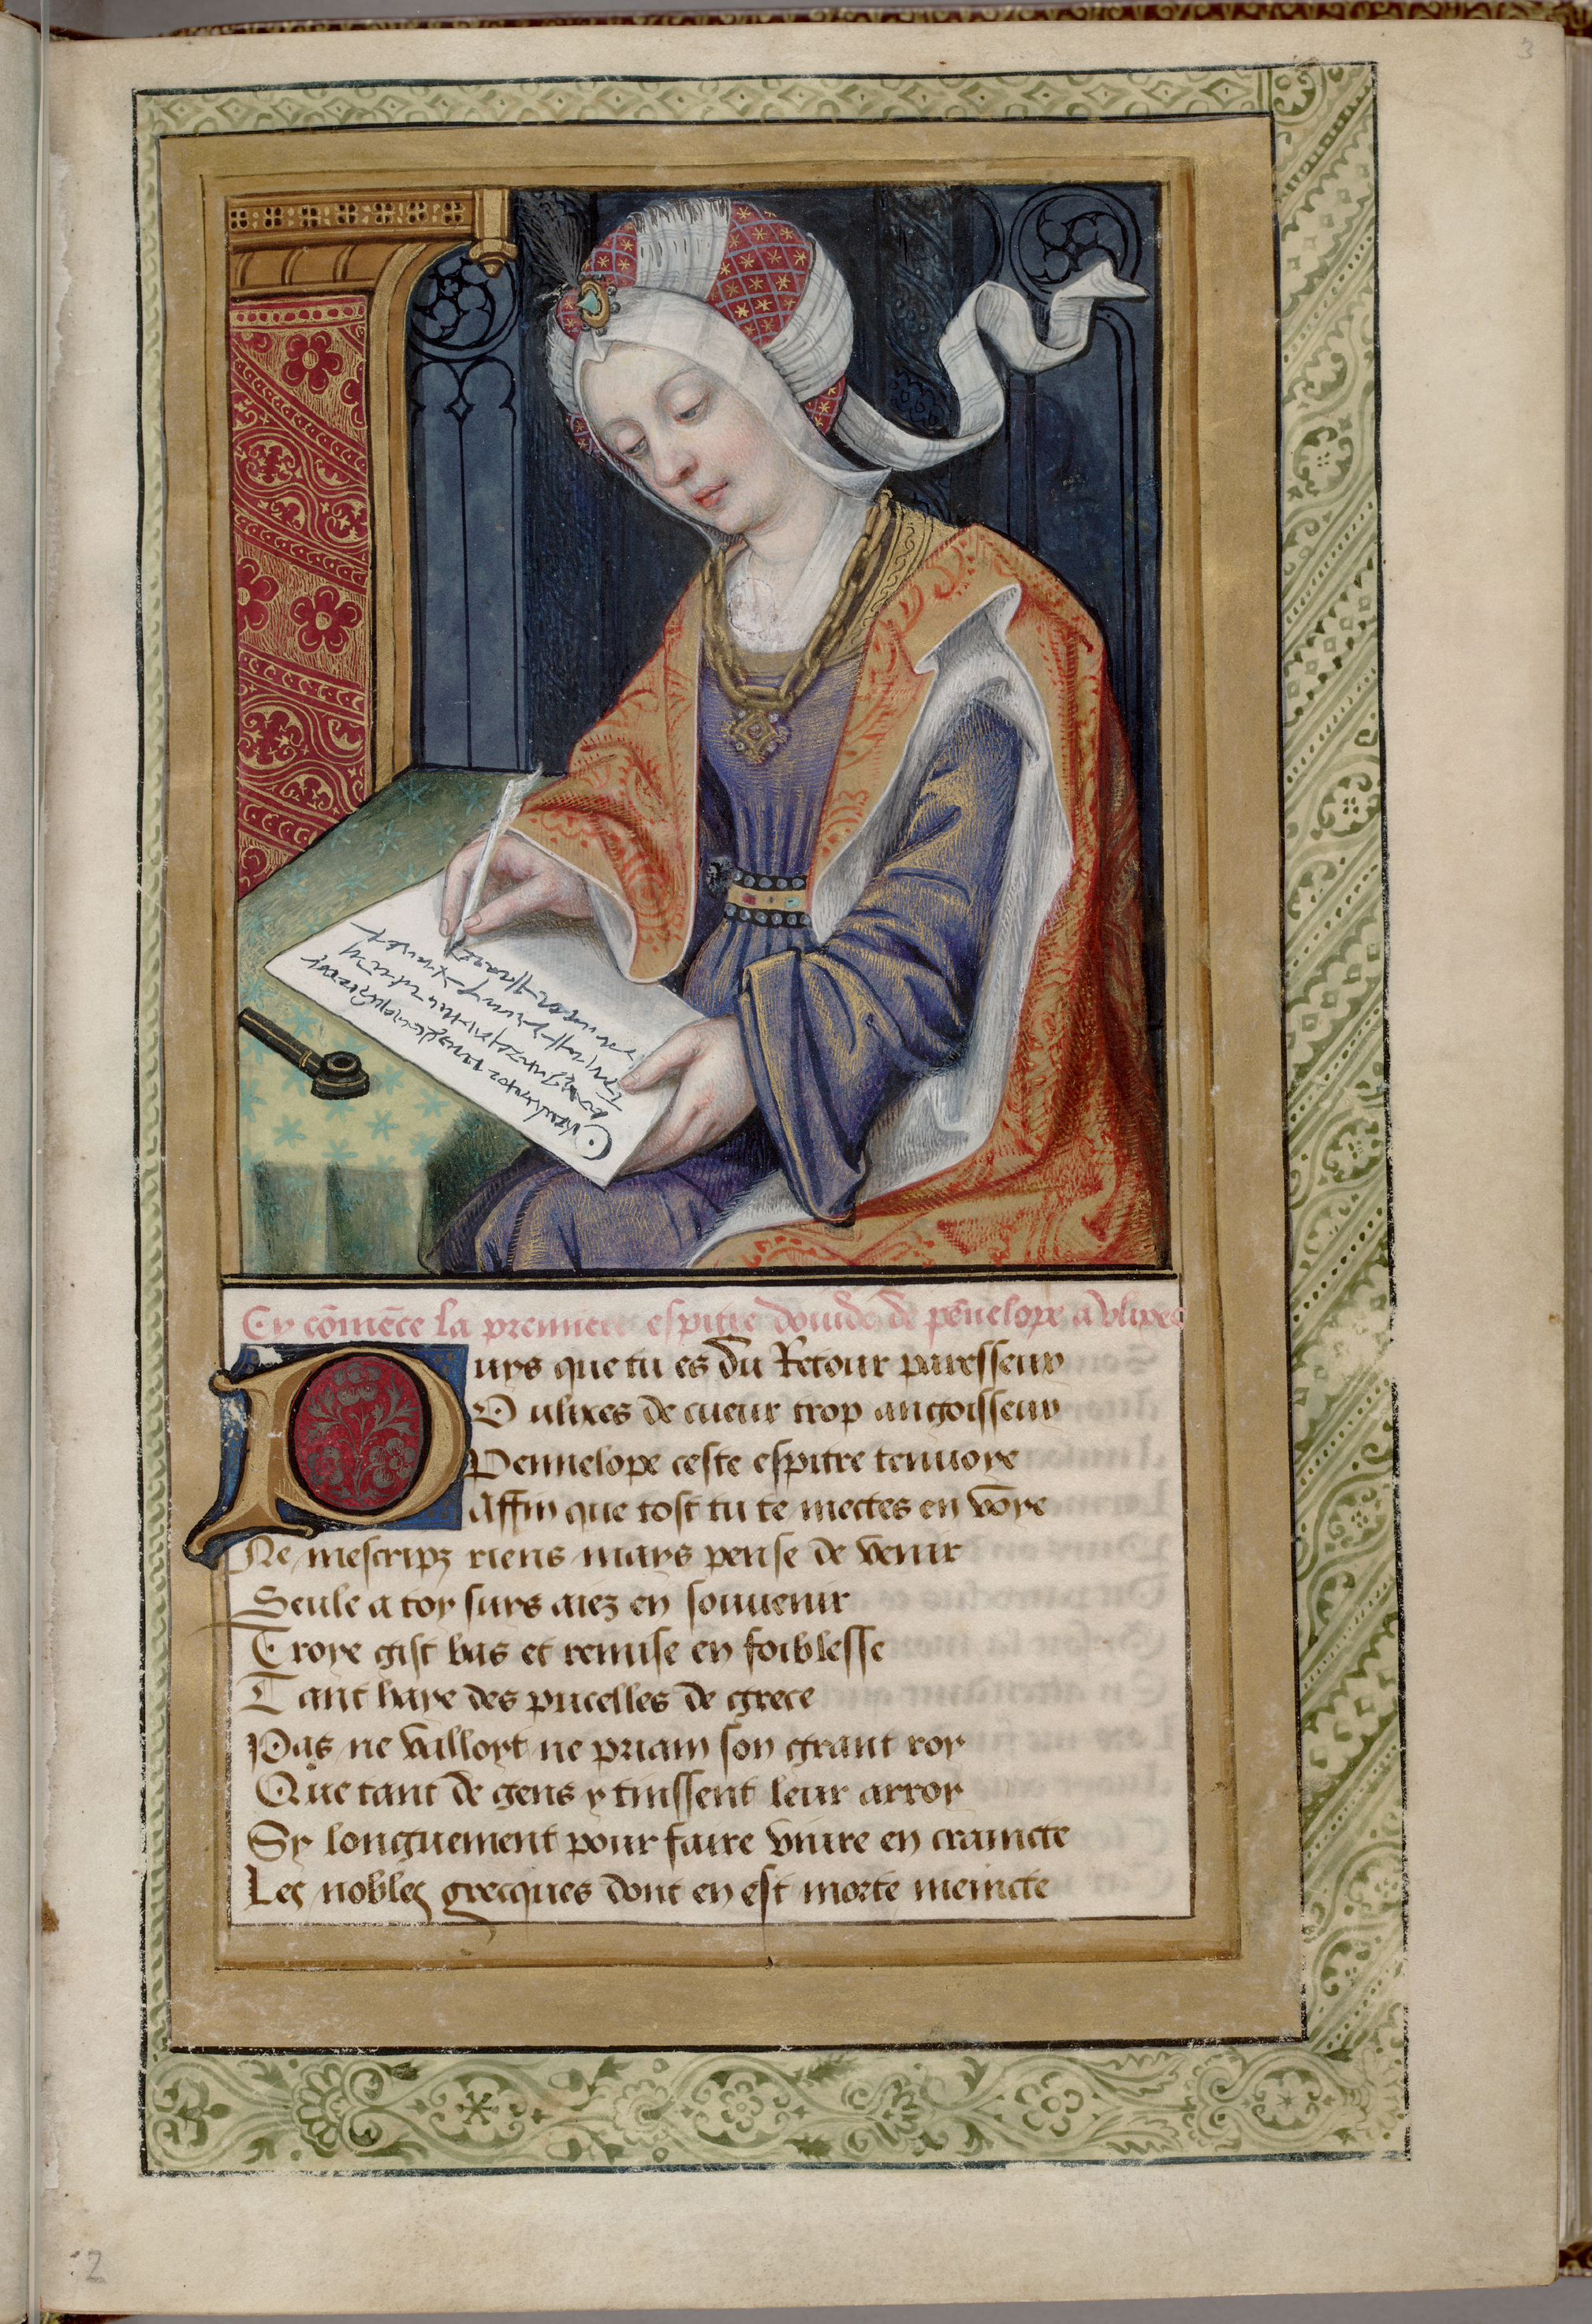 3
Cy cõmẽce la premiere espitre douide de pẽnelope a vlixes
Puys que tu es du Retour paresseux
O ulixes de cueur trop angoisseux
Pennelope ceste espitre tenuoye
Affin que tost tu te mectes en võye
Ne mescripz riens mays pense de venir
Seule a toy suys aiez en souuenir
Troye gist bas et remise en foiblesse
Tant haye des pucelles de grece
Pas ne valloyt ne priam son grant roy
Que tant de gens y tinssent leur arroy
Sy longuement pour faire viure en craincte
Les nobles grecques dont en est morte meincte
2